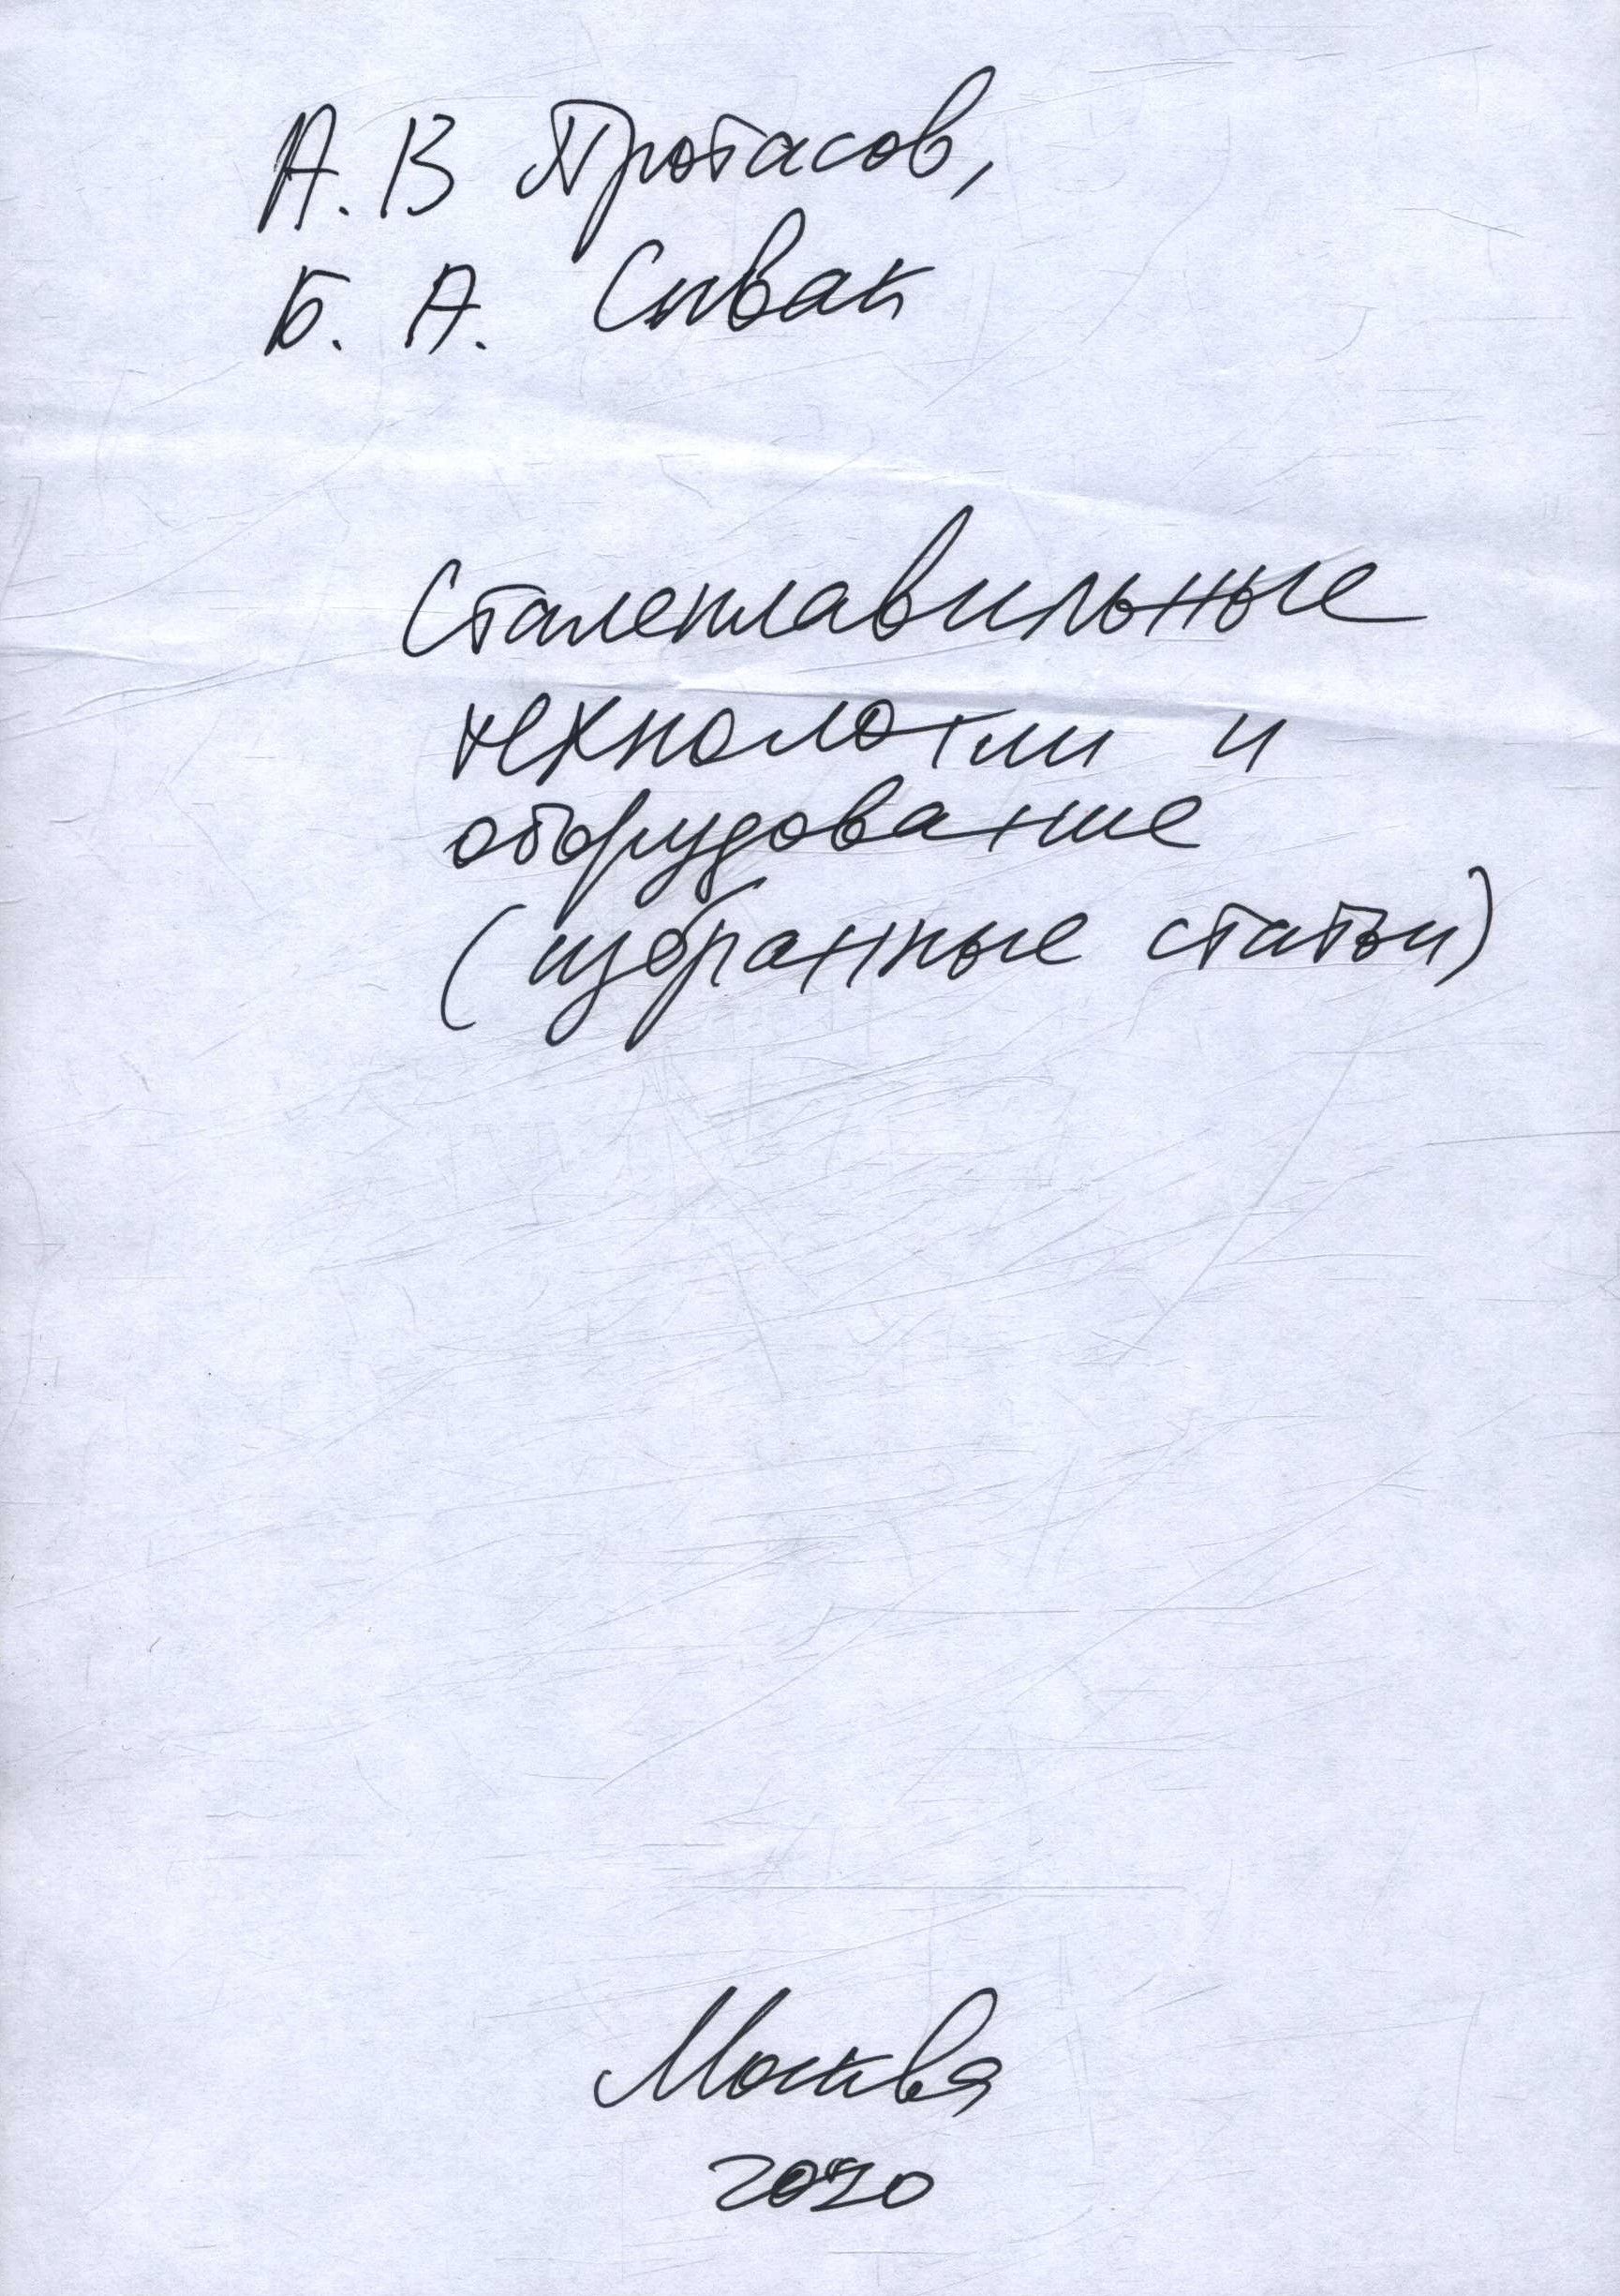 А. В Протасов,
Б. А. Сивак
Сталеплавильные
технологии и
оборудование
(избранные статьи)
Москва
2020